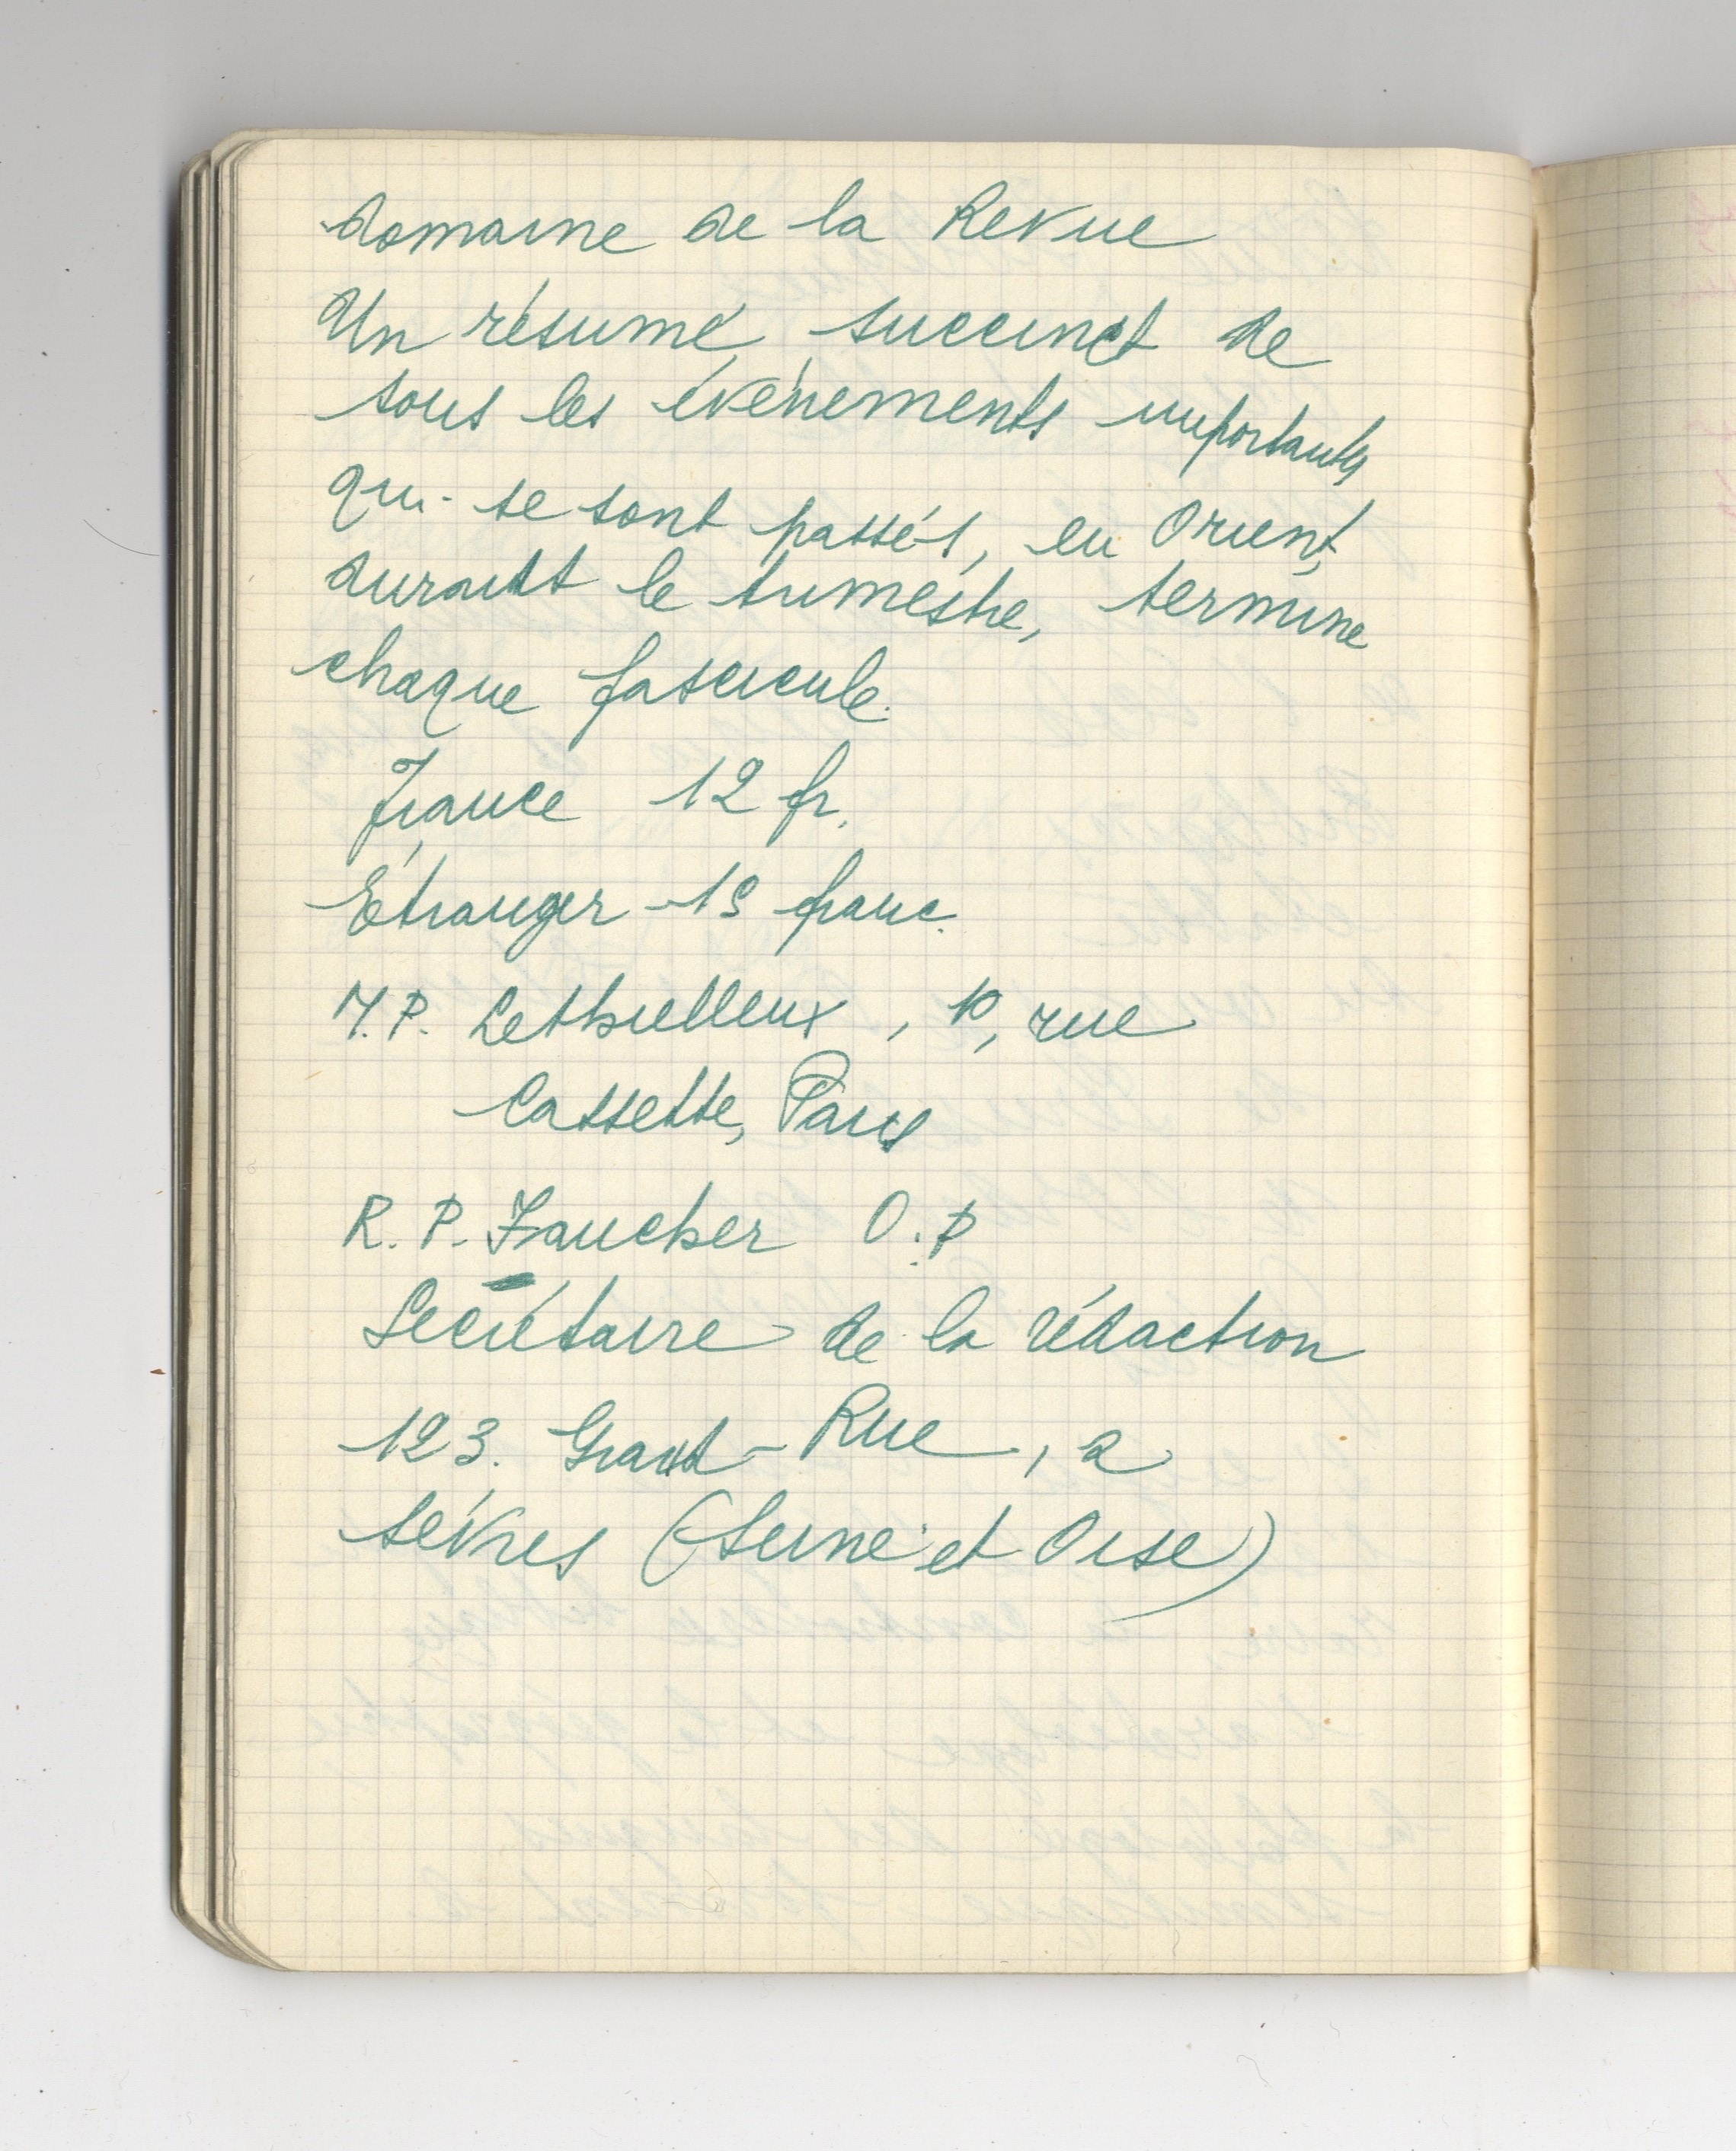 domaine de la Revue
Un résumé succinct de
tous les événements importants,
qui se sont passés, en Orient,
durant le trimestre, termine
chaque fascicule.
France 12 fr.
Étranger 15 franc.
M. P. Lethielleux, 10, rue
Cassette, Paris
R. P. Faucher O. P
Secrétaire de la rédaction
123. Grand-Rue, a
Sèvres (Seine et Oise)